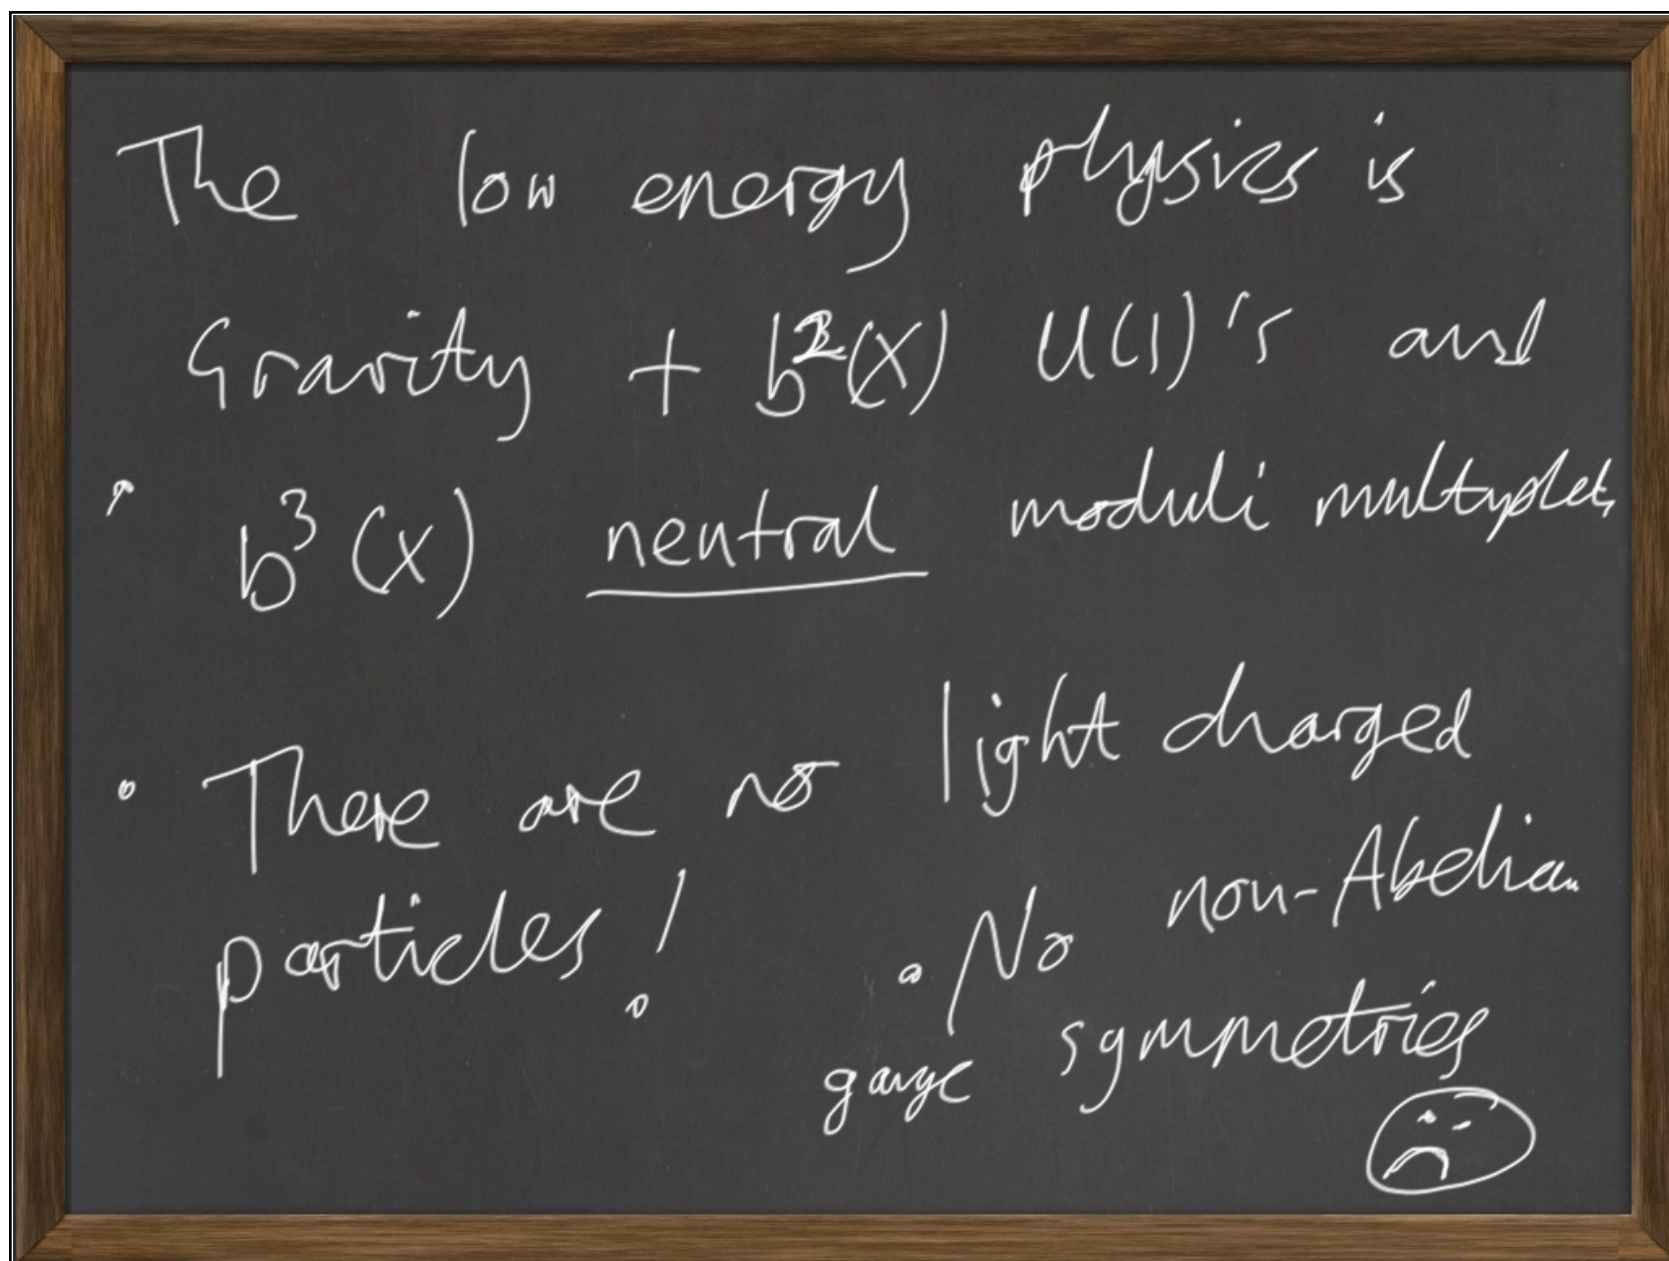 The low energy physics is
Gravity + b²(X) U(1)'s and
• b³(X) neutral moduli multyplets
• There are no light charged
particles!
• No non-Abelian
gauge symmetries